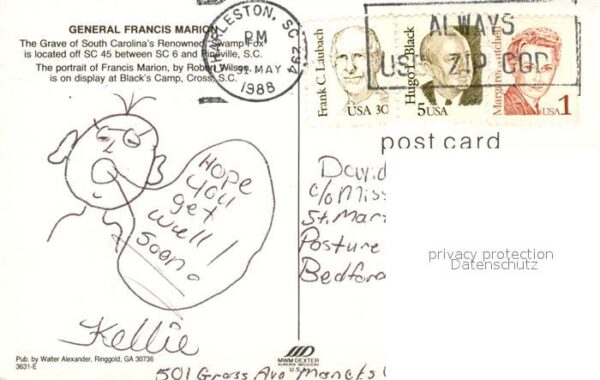 GENERAL FRANCIS MARION
The Grave of South Carolina's Renowned Swamp Fox
is located off SC 45 between SC 6 and Pineville, S.C.
The portrait of Francis Marion, by Robert Wilson,
is on display at Black's Camp, Cross, S.C.
CHARLESTON, SC 294
PM
31 MAY
1988
ALWAYS
USE ZIP COD
Frank C. Laubach
USA 30
Hugo L. Black
5USA
Margaret Mitchell
USA 1
post card
Hope
you
get
well!
soon.
Kellie
David
c/o Miss
St. Mar
Posture
Bedford
privacy protection
Datenschutz
Pub. by Walter Alexander, Ringgold, GA 30736
3631-E
MWM DEXTER
AURORA MISSOURI
U.S.A.
501 Grass Ave